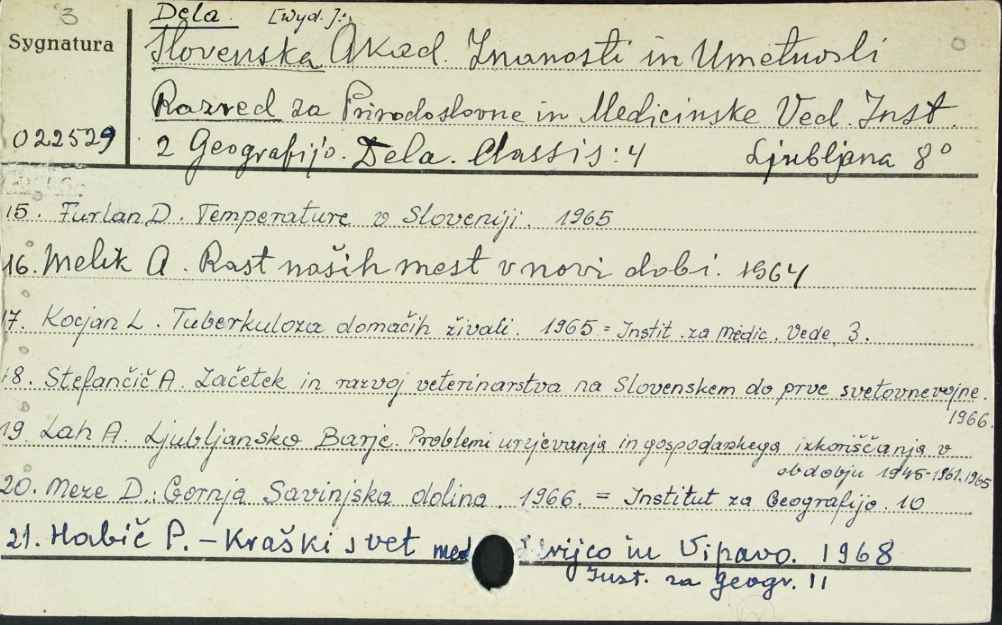 3
Dela. [Wyd.]:
Sygnatura
Slovenska Akad. Znanosti in Umetnosti
Razred za Prirodoslovne in Medicinske Ved. Inst.
022529
2 Geografijo. Dela. Classis: 4 Ljubljana 8°
15. Furlan D. Temperature v Sloveniji. 1965
16. Melik A. Rast naših mest v novi dobi. 1964
17. Kocjan L. Tuberkuloza domačih živali. 1965 = Instit. za Medic. Vede 3.
18. Stefančič A. Začetek in razvoj veterinarstva na Slovenskem do prve svetovne vojne.
1966.
19. Lah A. Ljubljansko Barje. Problemi urejevanja in gospodarskega izkoriščanja v
obdobju 1945-1961. 1965
20. Meze D. Gornja Savinjska dolina. 1966. = Institut za Geografijo. 10
21. Habič P. – Kraški svet med in Vipavo. 1968
Inst. za geogr. 11